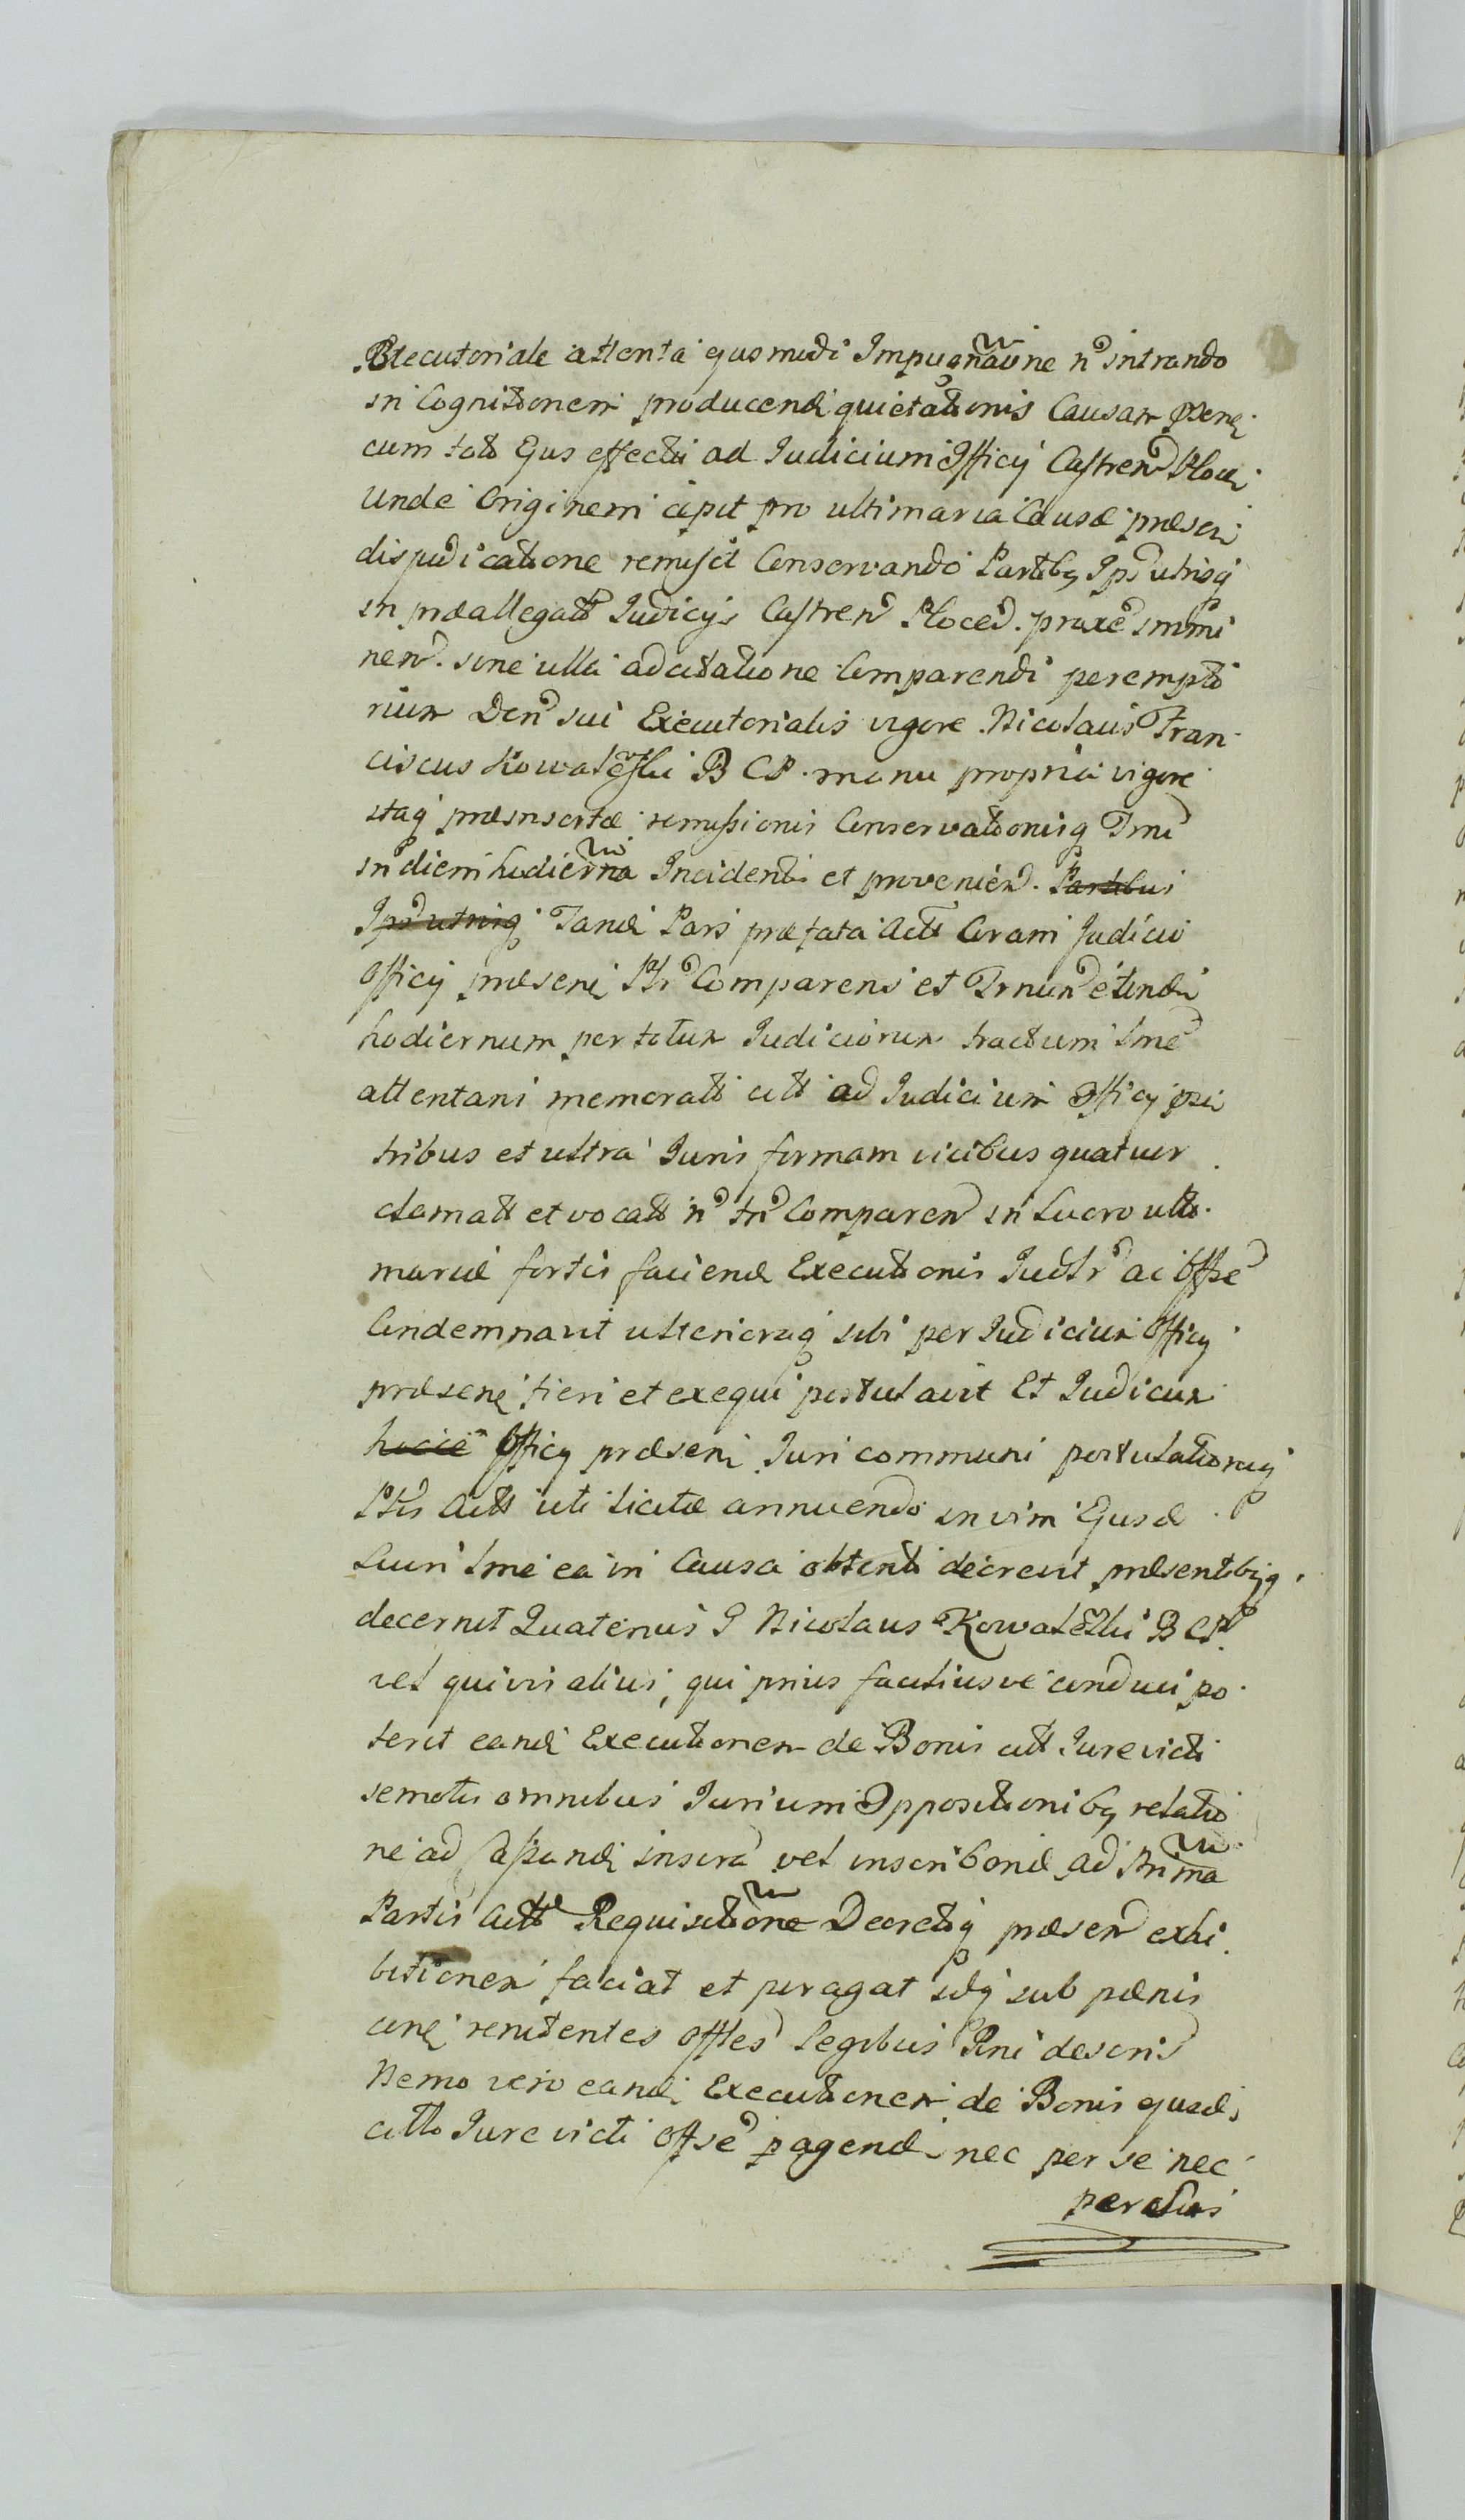 Executoriale attenta ejusmodi Impugnaõne n̄ intrando
in Cognitionem producendi quietationis Causam
cum toto Ejus effectu ad Judicium Officij Castren Plocen
unde Originem cepit pro ultimaria Causæ præsen
disjudicatione remisit Conservando Partibq Ips utrisq
in præallegatt Judicijs Castren Plocen. proxe immi
nen. sine ulla adcitatione Comparendi perempto
rium Den sui Executorialis vigore Nicolaus Fran
ciscus Kowalewski B C P. manu propria vigore
itaq præinsertæ remissionis Conservationisq Tmi
in diem hodierna Incident et provenien. Partibus
Ips utrisq Tandi Pars præfata Act Coram Judicio
Officij præsen Ptr Comparens et Trnun
hodiernum per totum Judiciorum tractum lme
attentans memoratt citt ad Judicium Officij psn
tribus et ultra Juris formam vicibus quatuor
clamatt et vocatt n̄ tn Comparen in Lucro ulti
mariæ fortis faciendæ Executionis ac Offse
Condemnavit ulterioraq sibi per Judicium Officij
præsens fieri et exequi postulavit Et Judicium
hocce Officij præsens Juri communi postulationiq
Ptis Actt uti licitæ annuendo in vim Ejusd
Lucri lme ea in Causa obtenti decrevit præsentibq
decernit Quatenus G Nicolaus Kowalewski B C P.
vel quivis alius, qui prius faciliusve conduci po
terit eandi Executionem de Bonis citt Jurevicti
semotis omnibus Jurium Oppositionibq relatio
ne ad vel inscribend ad Prima
Partis Actt Requisitione Decretiq præsen exhi
bitionem faciat et peragat idq sub pœnis
renitentes Offles legibus Rni descris
Nemo vero eandi Executionem de Bonis ejusd
citto Jurevicti offse pagend nec per se nec
per alios